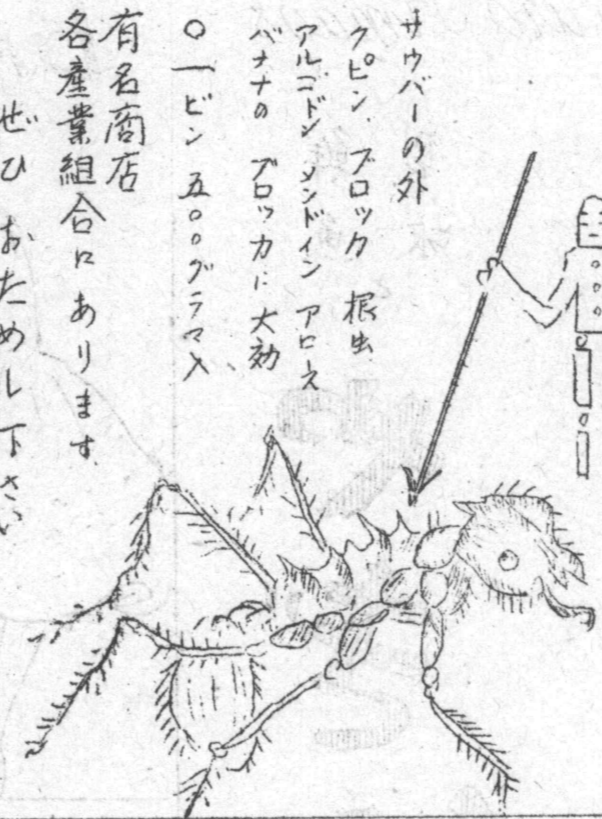 サウバーの外
クピン ブロック 根虫
アルゴドン メンドイン アロース
バナナの ブロッカに 大効
〇一ビン 五〇〇グラマ入
有名商店
各産業組合にあります
ぜひ おためし下さい